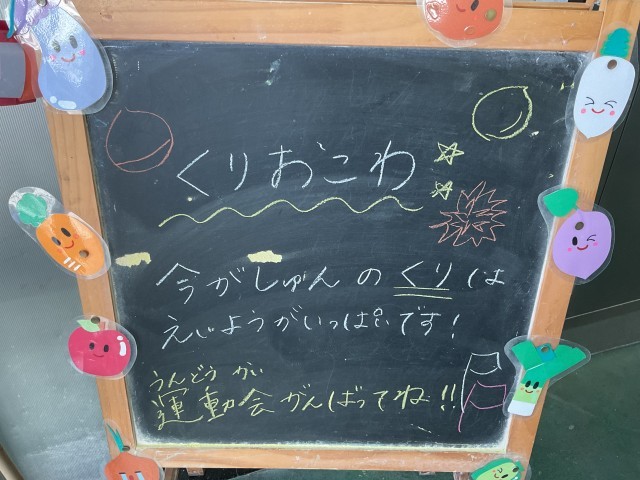 くりおこわ
今がしゅんのくりは
えいようがいっぱいです!
うんどうかい
運動会がんばってね!!